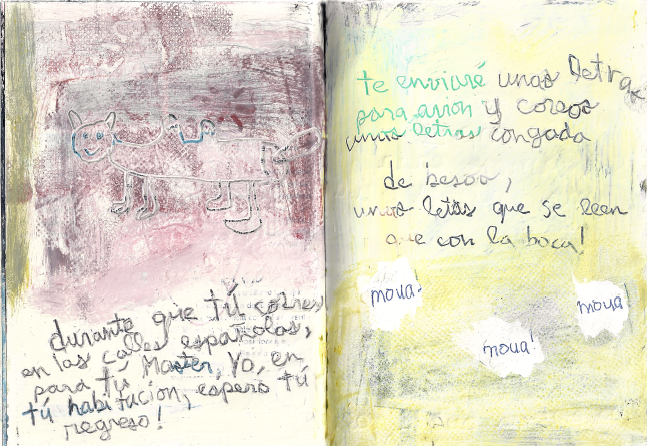 durante que tú corres
en las calles españolas,
para tú Master, Yo, en
tú habitacion, espero tú
regreso!
te enviaré unas letras
para avion y coreos
unas letras congada
de besos,
unas letas que se leen
que con la boca!
moua-
moua!
moua